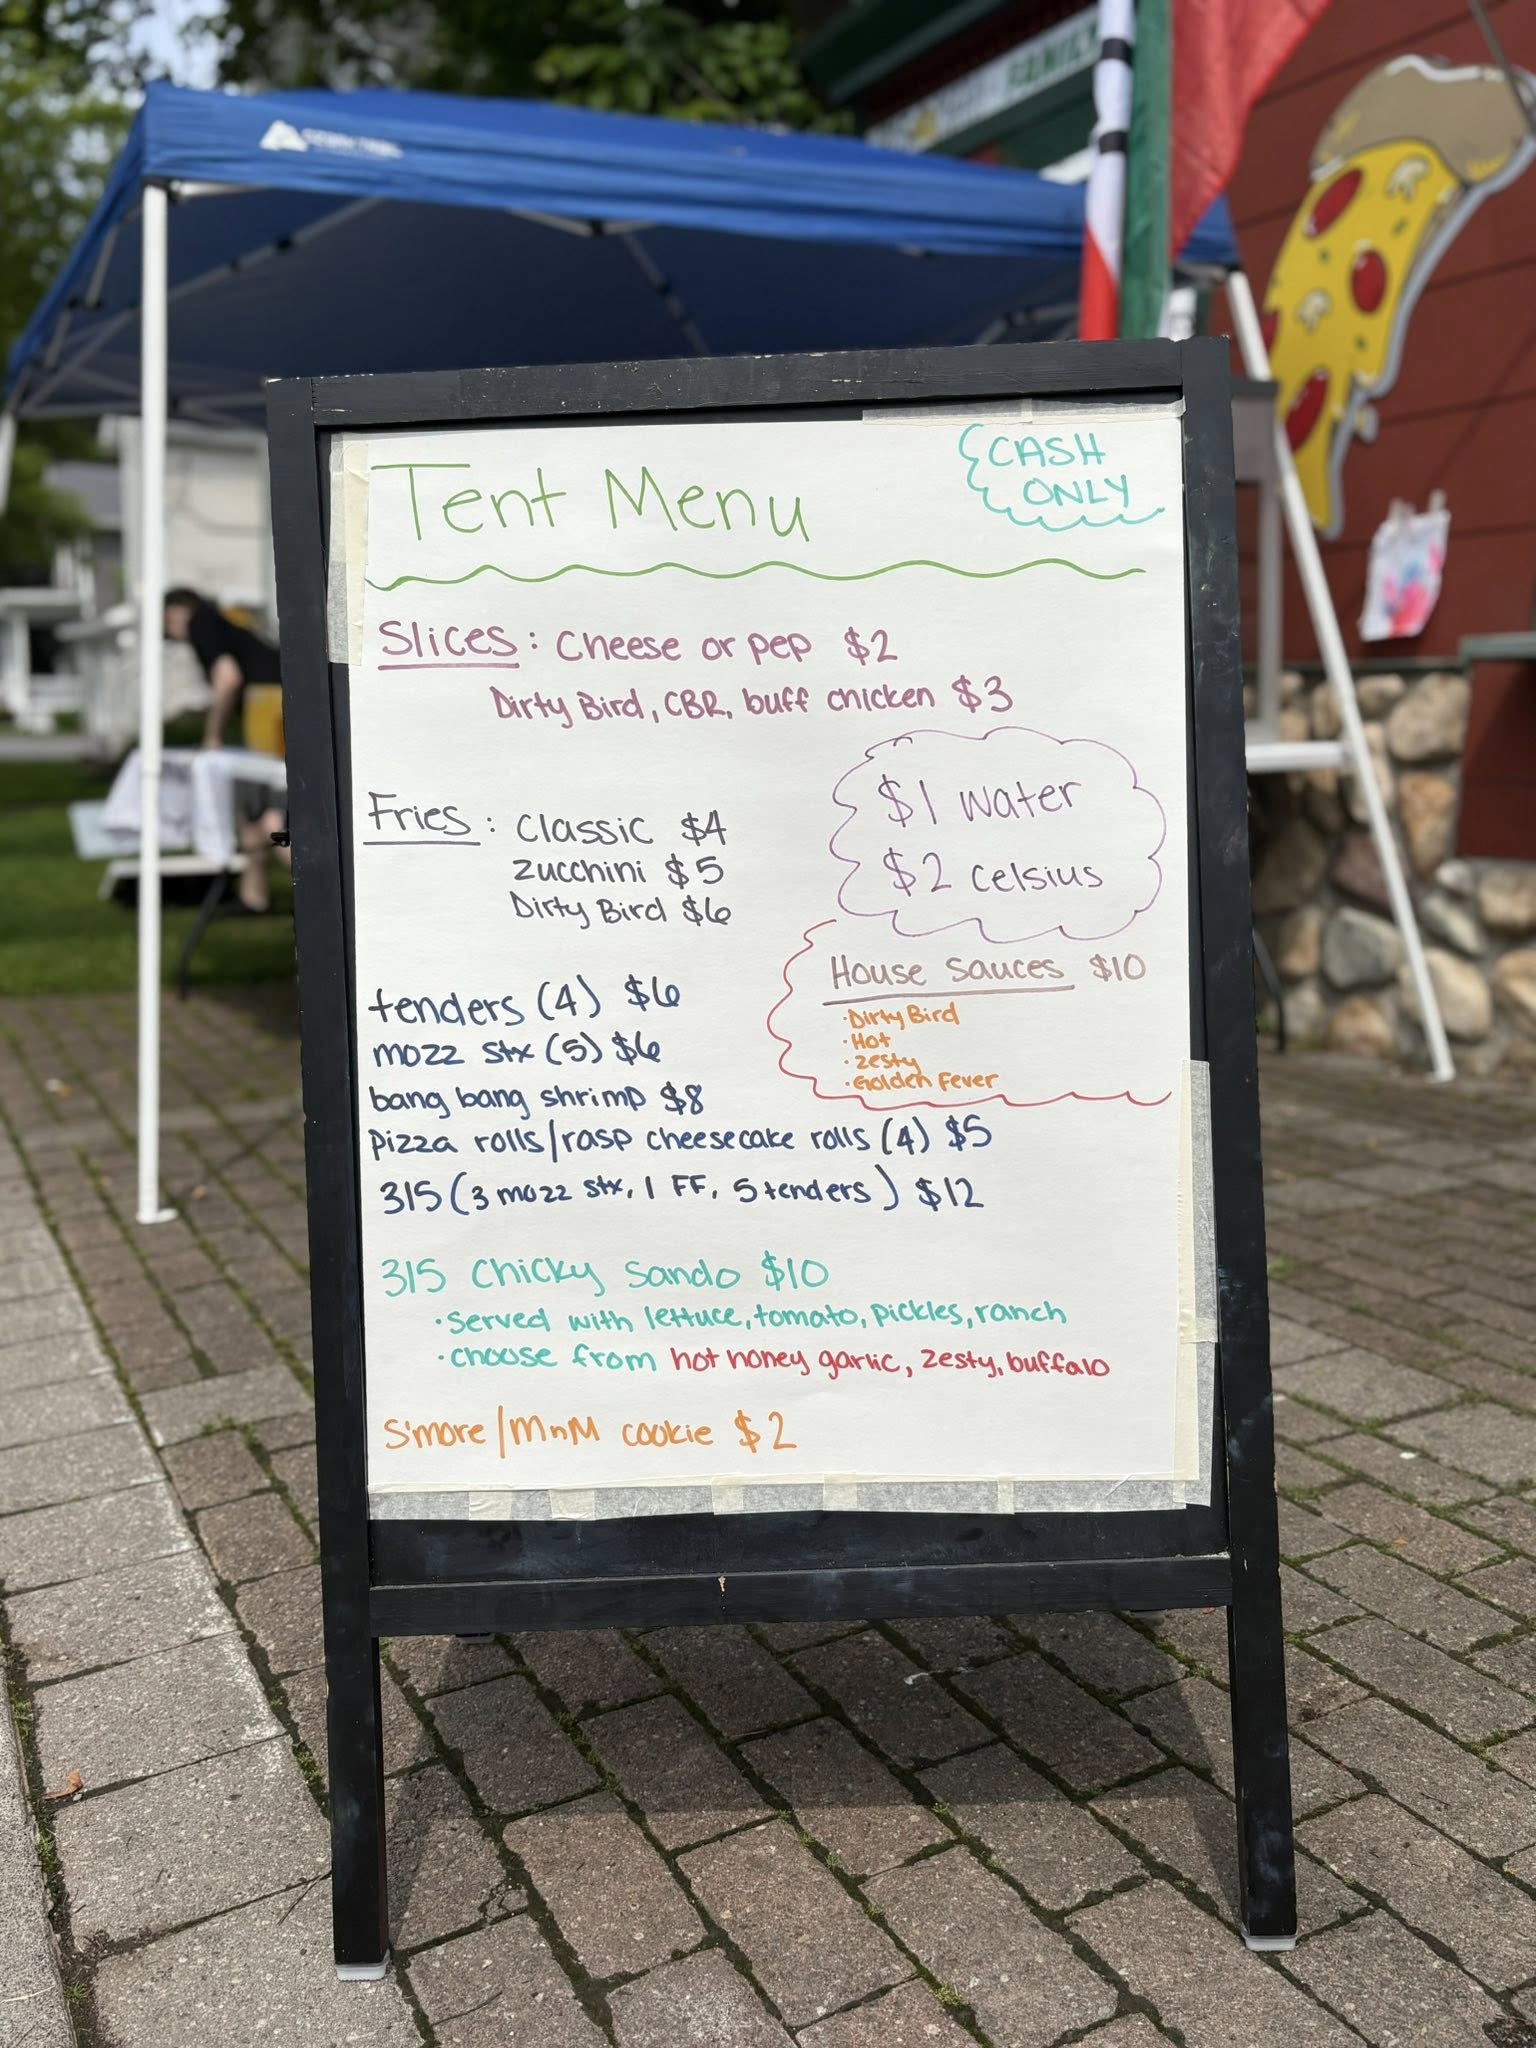 Tent Menu
CASH
ONLY
Slices: Cheese or pep $2
Dirty Bird, CBR, buff chicken $3
$1 water
$2 celsius
Fries: Classic $4
zucchini $5
Dirty Bird $6
House Sauces $10
· Dirty Bird
· Hot
· zesty
· Golden Fever
tenders (4) $6
mozz stx (5) $6
bang bang shrimp $8
pizza rolls/rasp cheesecake rolls (4) $5
315 (3 mozz stx, 1 FF, 5 tenders) $12
315 Chicky Sando $10
· served with lettuce, tomato, pickles, ranch
· choose from hot honey garlic, zesty, buffalo
S'more/MnM cookie $2